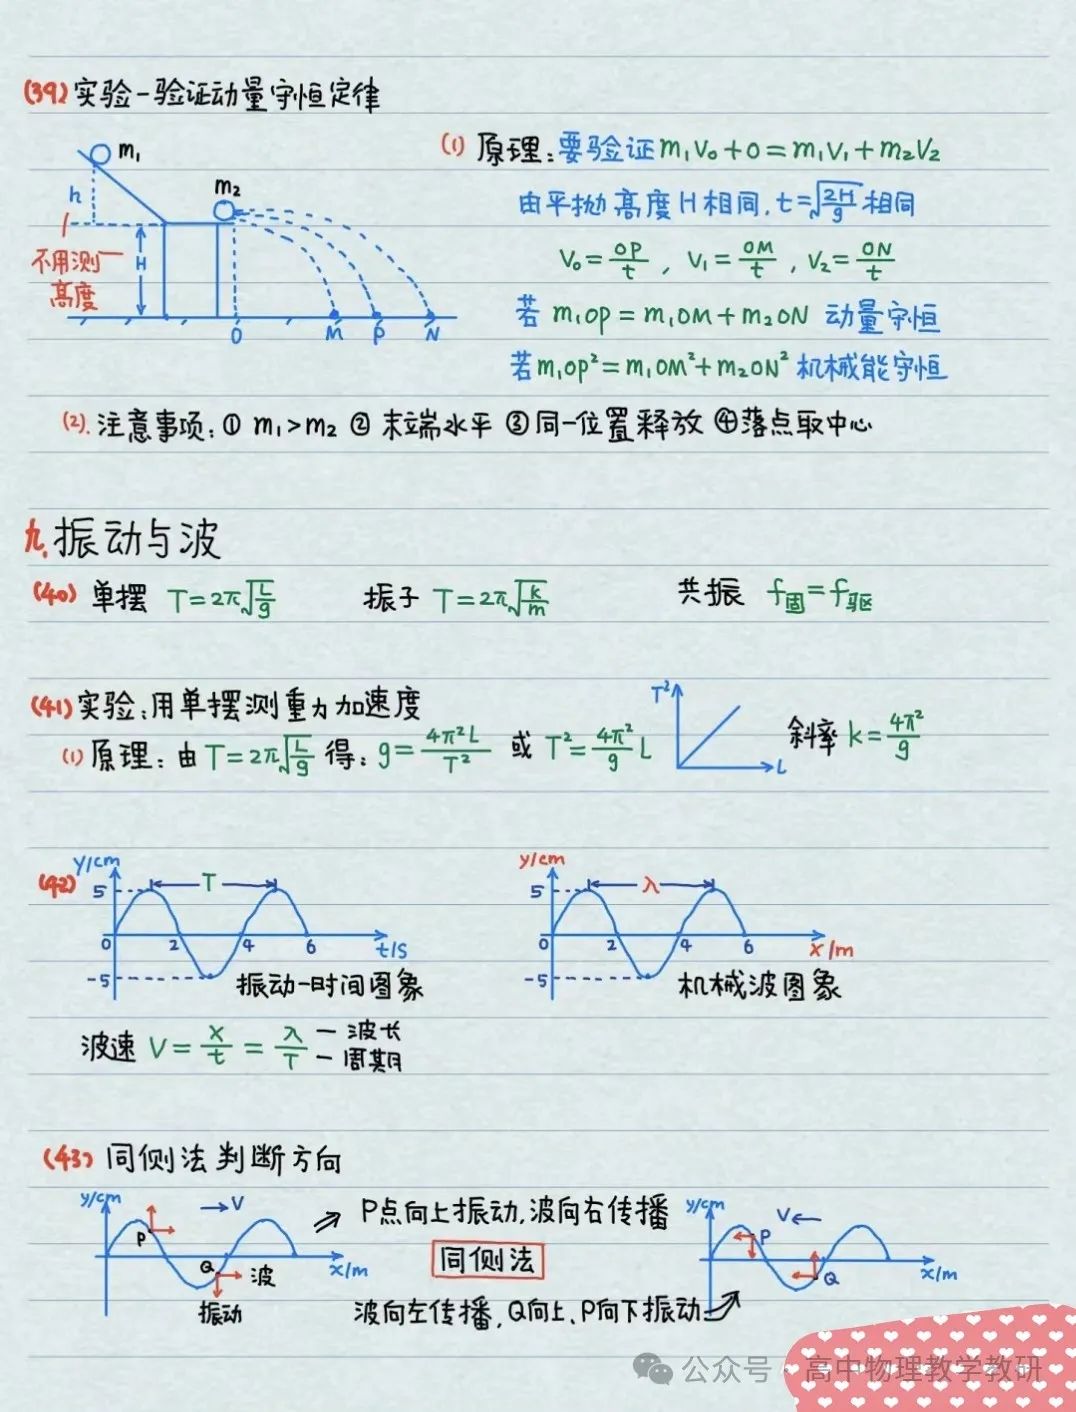 (39) 实验-验证动量守恒定律
m₁
h
m₂
不用测
高度
H
O M P N
(1) 原理:要验证m₁V₀+0=m₁V₁+m₂V₂
由平抛高度H相同,t=√(2H/g)相同
V₀=OP/t , V₁=OM/t , V₂=ON/t
若 m₁OP=m₁OM+m₂ON 动量守恒
若m₁OP²=m₁OM²+m₂ON² 机械能守恒
(2). 注意事项:① m₁>m₂ ② 末端水平 ③同一位置释放 ④落点取中心
九.振动与波
(40) 单摆 T=2π√(L/g) 振子 T=2π√(k/m) 共振 f固=f驱
(41) 实验:用单摆测重力加速度
(1) 原理:由T=2π√(L/g) 得:g=4π²L/T² 或 T²=4π²/g L
T²
L
斜率 k=4π²/g
(42)
y/cm
5
T
0 2 4 6
t/s
-5
振动-时间图象
y/cm
5
λ
0 2 4 6
x/m
-5
机械波图象
波速 V=x/t=λ/T
一波长
一周期
(43) 同侧法判断方向
y/cm
→V
P
Q
波
x/m
振动
P点向上振动,波向右传播
同侧法
波向左传播,Q向上、P向下振动
y/cm
V←
P
Q
x/m
公众号·高中物理教学教研